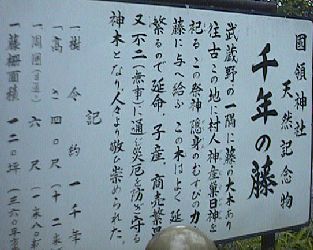 國領神社
天然記念物
千年の藤
武蔵野の一隅に藤の大木あり
往古この地に村人神産巣日神を
祀るこの祭神隠身のむすびの力
藤に与へ給ふ この木はよく延び
繁るので延命、子産、商売繁昌
又不二(無事)に通じ災厄を防ぎ守る
神木となり人々より敬ひ崇められた。
記
一樹令 約一千年
一高さ 四〇尺(十二米)
一周囲(目通) 六尺
一藤棚面積 一二〇坪